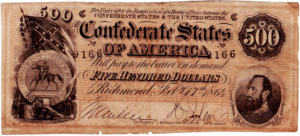 Two Years after the Ratification of a Treaty of Peace between the
CONFEDERATE STATES & THE UNITED STATES,
500
Confederate States
OF AMERICA
500
9166
166
Will pay to the bearer on demand
FIVE HUNDRED DOLLARS
Richmond, Feb. 17th 1864